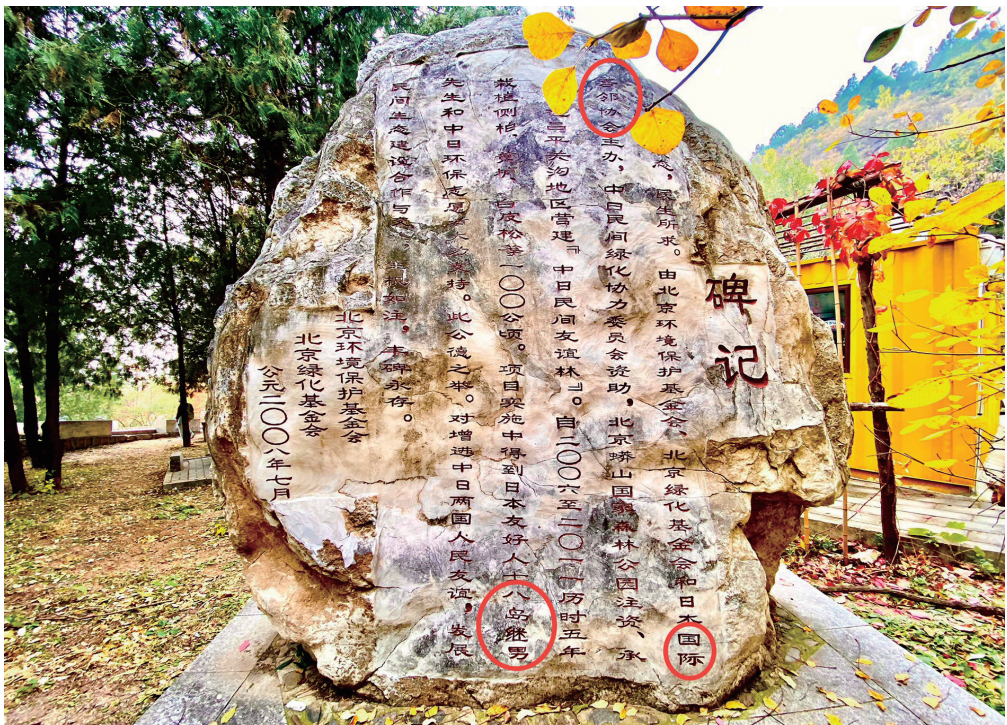 碑记
态，民生所求。由北京环境保护基金会、北京绿化基金会和日本国际
善邻协会主办，中日民间绿化协力委员会资助，北京蟒山国家森林公园注资、承
昌平关沟地区营建『中日民间友谊林』。自二〇〇六至二〇一一历时五年
栽植侧柏、黄栌、白皮松等一〇〇公顷。项目实施中得到日本友好人士八岛继男
先生和中日环保志愿 支持。此公德之举。对增进中日两国人民友谊，发展
民间生态建设合作与 如注，丰碑永存。
北京环境保护基金会
北京绿化基金会
公元二〇〇八年七月